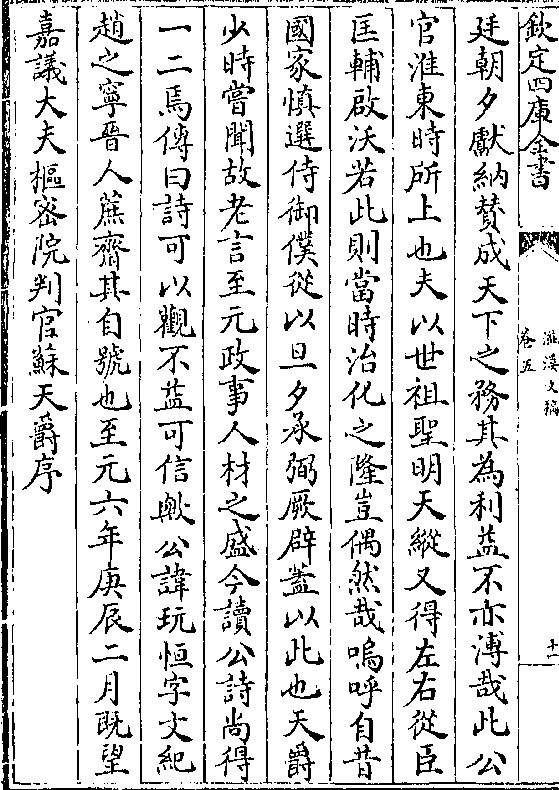 欽定四庫全書
滋溪文稿
卷五
十一
廷朝夕獻納賛成天下之務其為利益不亦溥哉此公
官淮東時所上也夫以世祖聖明天縱又得左右從臣
匡輔啟沃若此則當時治化之隆豈偶然哉嗚呼自昔
國家慎選侍御僕從以旦夕承弼厥辟蓋以此也天爵
少時嘗聞故老言至元政事人材之盛今讀公詩尚得
一二焉傳曰詩可以觀不益可信歟公諱玩恒字文紀
趙之寧晉人蕉齋其自號也至元六年庚辰二月既望
嘉議大夫樞密院判官蘇天爵序